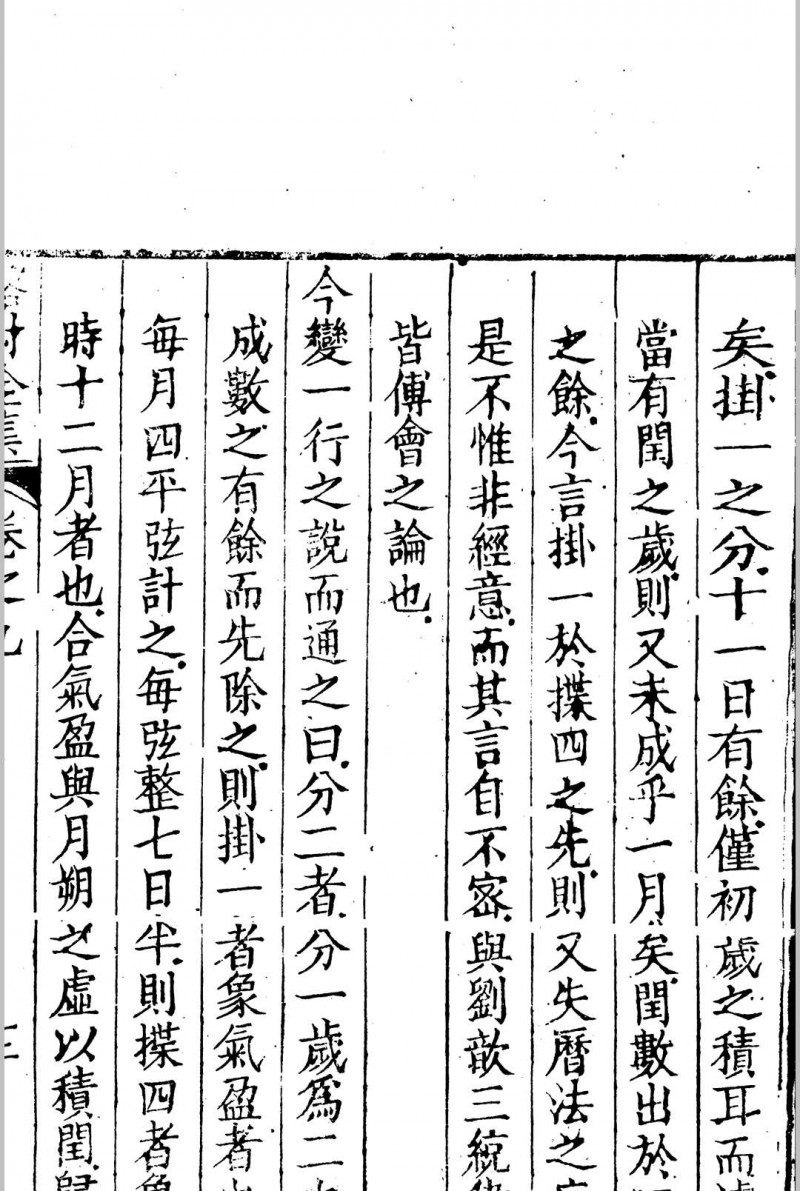 矣掛一之分十一日有餘僅初歲之積耳而
當有閏之歲則又未成乎一月矣閏數出於
之餘今言掛一於揲四之先則又失曆法之
是不惟非經意而其言自不密與劉歆三統
皆傅會之論也
今變一行之說而通之曰分二者分一歲為二
成數之有餘而先除之則掛一者象氣盈者
每月四平弦計之每弦整七日半則揲四者象
時十二月者也合氣盈與月朔之虛以積閏歸
全集
卷之九
三